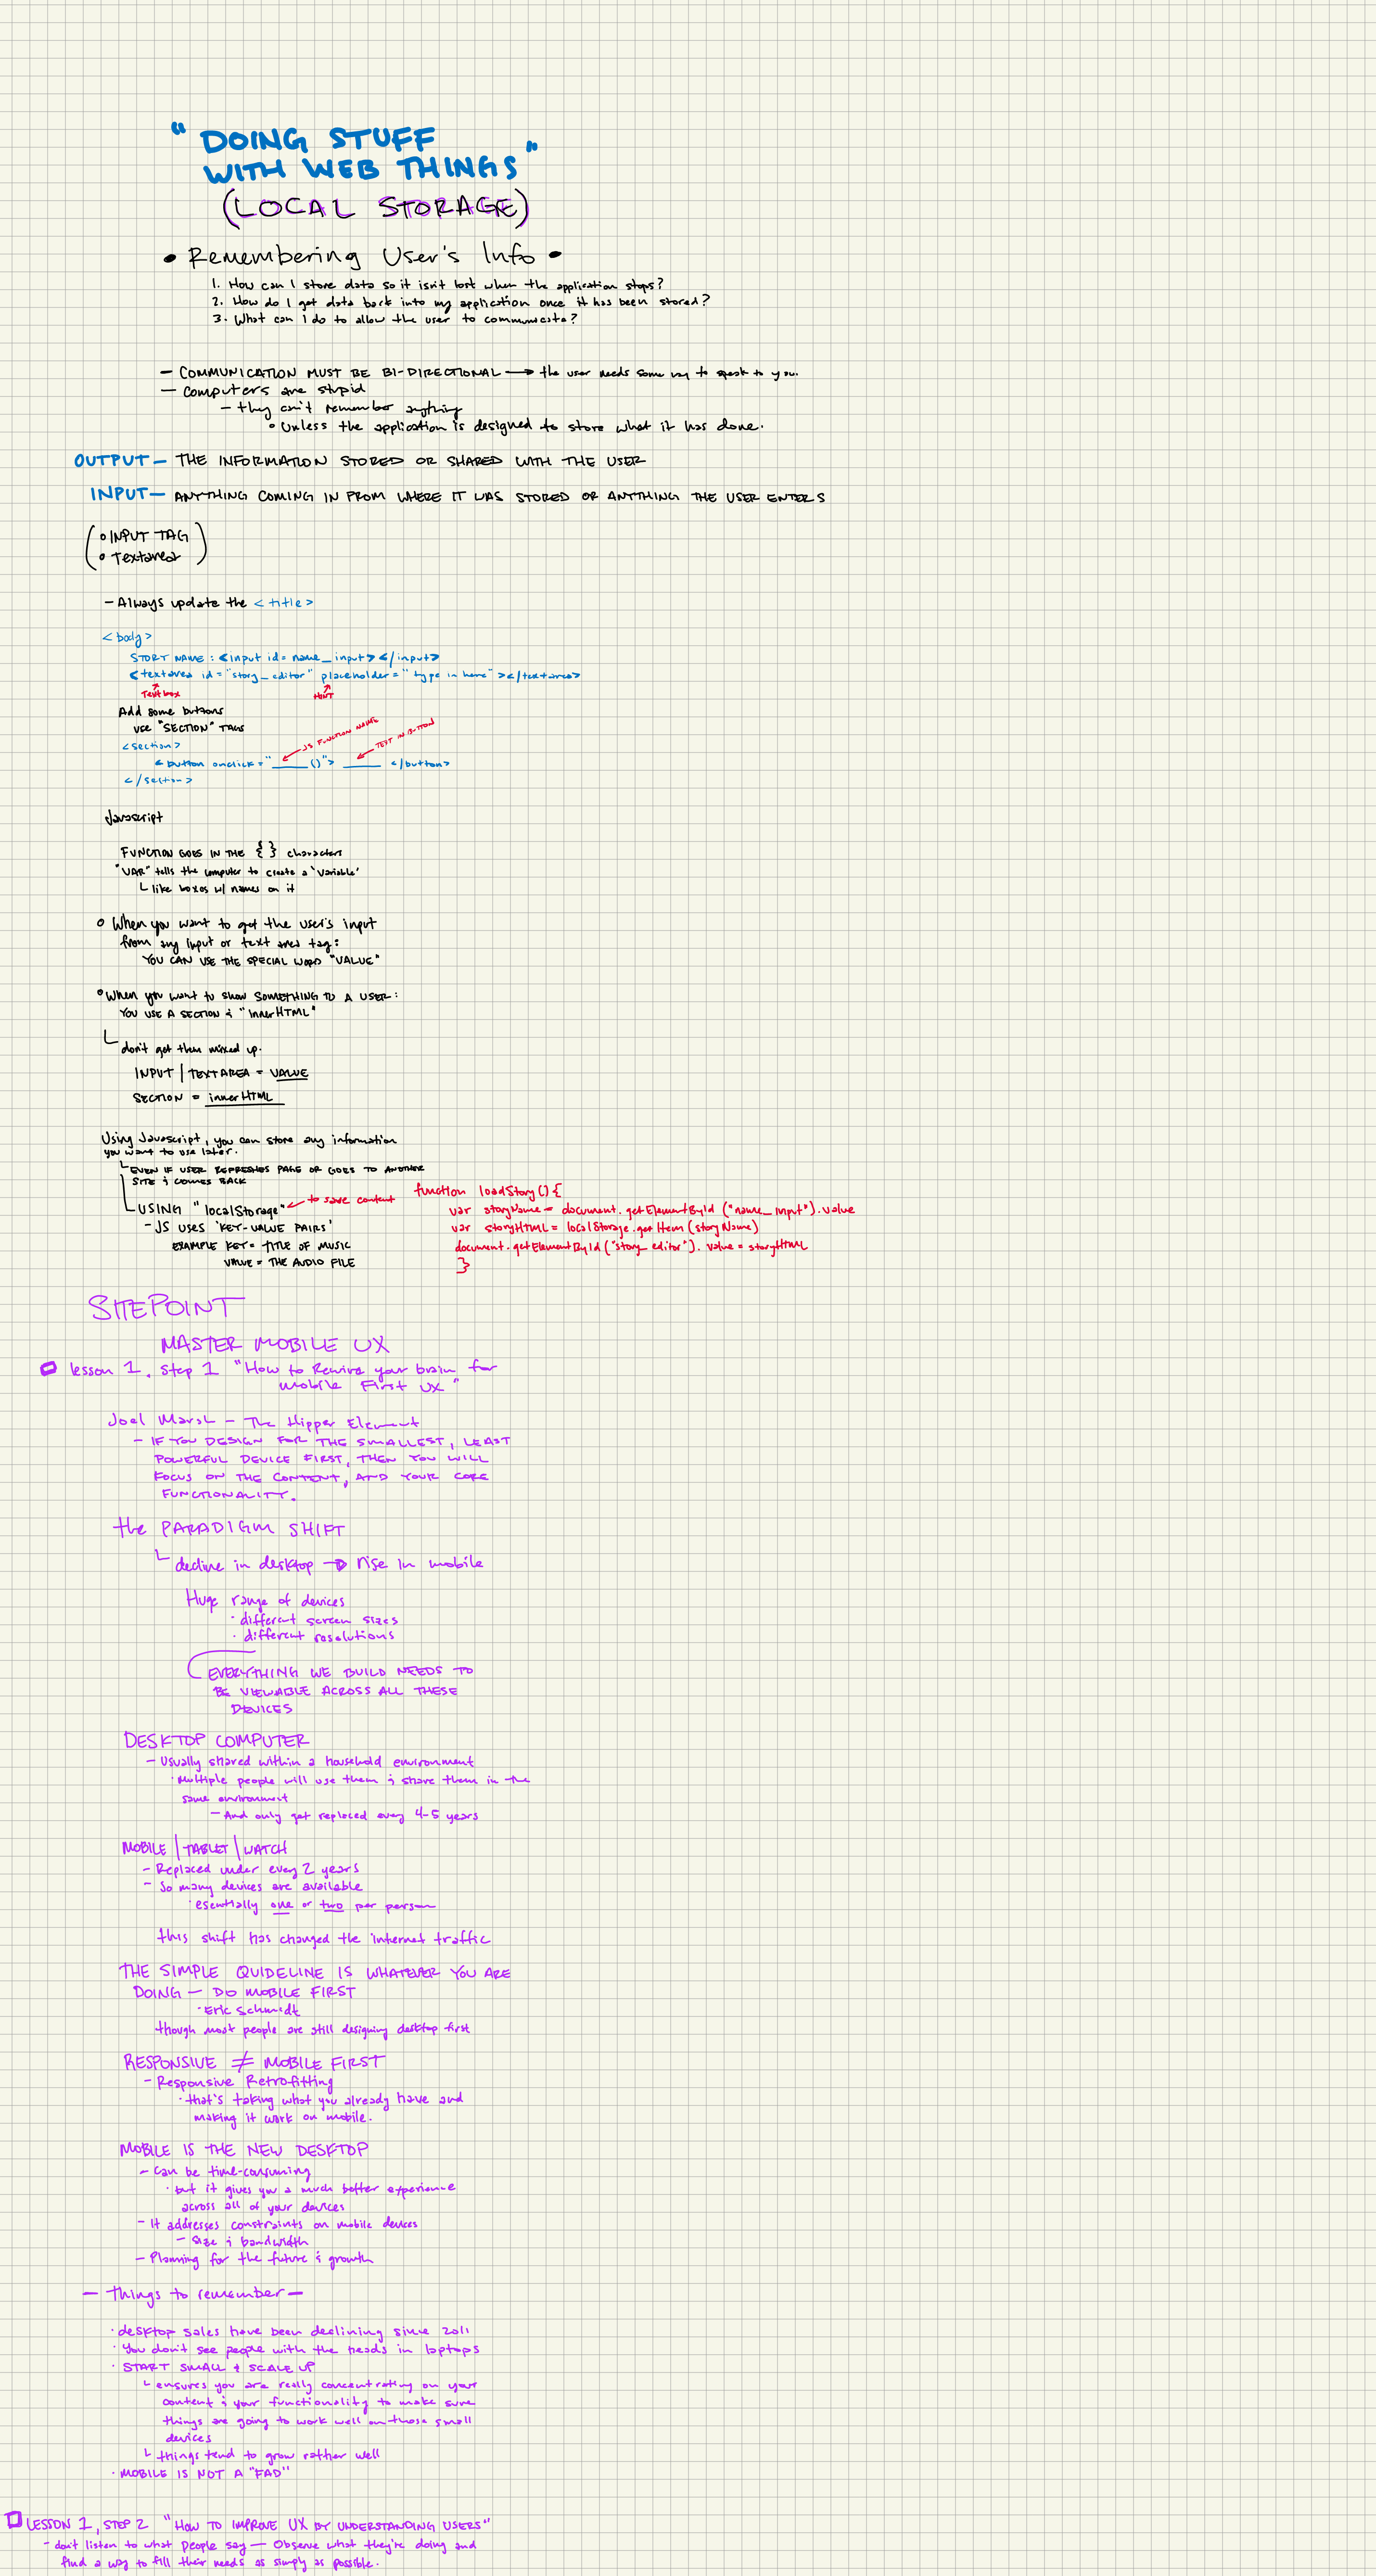 " DOING STUFF
WITH WEB THINGS"
(LOCAL STORAGE)
• Remembering User's Info •
1. How can I store data so it isn't lost when the application stops?
2. How do I get data back into my application once it has been stored?
3. What can I do to allow the user to communicate?
— COMMUNICATION MUST BE BI-DIRECTIONAL → the user needs some way to speak to you.
— Computers are stupid
— they can't remember anything
° Unless the application is designed to store what it has done.
OUTPUT — THE INFORMATION STORED OR SHARED WITH THE USER
INPUT — ANYTHING COMING IN FROM WHERE IT WAS STORED OR ANYTHING THE USER ENTERS
° INPUT TAG
° Textarea
— Always update the <title>
<body>
STORY NAME : <input id= name_input></input>
<textarea id="story_editor" placeholder=" type in here"></textarea>
Text box
HINT
Add some buttons
use "SECTION" TAGS
JS FUNCTION NAME
TEXT IN BUTTON
<section>
<button onclick="_____()"> _____ </button>
</section>
Javascript
FUNCTION GOES IN THE { } characters
"VAR" tells the computer to create a 'variable'
└ like boxes w/ names on it
° When you want to get the user's input
from any input or text area tag:
YOU CAN USE THE SPECIAL WORD "VALUE"
° When you want to show SOMETHING TO A USER:
YOU USE A SECTION & "innerHTML"
└ don't get them mixed up.
INPUT | TEXTAREA = VALUE
SECTION = innerHTML
Using Javascript, you can store any information
you want to use later.
└ EVEN IF USER REFRESHES PAGE OR GOES TO ANOTHER
SITE & COMES BACK
└ USING "localStorage" ← to save content
- JS USES 'KEY-VALUE PAIRS'
EXAMPLE KEY = TITLE OF MUSIC
VALUE = THE AUDIO FILE
function loadStory(){
var storyName = document.getElementById ("name_input").value
var storyHTML = localStorage.getItem (storyName)
document.getElementById ("story_editor"). value = storyHTML
}
SITEPOINT
MASTER MOBILE UX
lesson 1, step 1 "How to Rewire your brain for
mobile First UX"
Joel Marsh — The Hipper Element
— IF YOU DESIGN FOR THE SMALLEST, LEAST
POWERFUL DEVICE FIRST, THEN YOU WILL
FOCUS ON THE CONTENT, AND YOUR CORE
FUNCTIONALITY.
the PARADIGM SHIFT
└ decline in desktop → rise in mobile
Huge range of devices
· different screen sizes
· different resolutions
EVERYTHING WE BUILD NEEDS TO
BE VIEWABLE ACROSS ALL THESE
DEVICES
DESKTOP COMPUTER
— Usually shared within a household environment
· Multiple people will use them & share them in the
same environment
— And only get replaced every 4-5 years
MOBILE | TABLET | WATCH
— Replaced under every 2 years
— So many devices are available
· esentially one or two per person
this shift has changed the internet traffic
THE SIMPLE QUIDELINE IS WHATEVER YOU ARE
DOING — DO MOBILE FIRST
· Eric Schmidt
though most people are still designing desktop first
RESPONSIVE ≠ MOBILE FIRST
— Responsive Retrofitting
· that's taking what you already have and
making it work on mobile.
MOBILE IS THE NEW DESKTOP
— Can be time-consuming
· but it gives you a much better experience
across all of your devices
— It addresses constraints on mobile devices
— Size & bandwidth
— Planning for the future & growth
— Things to remember —
· desktop sales have been declining since 2011
· You don't see people with the heads in laptops
· START SMALL & SCALE UP
└ ensures you are really concentrating on your
content & your functionality to make sure
things are going to work well on those small
devices
└ things tend to grow rather well
· MOBILE IS NOT A "FAD"
LESSON 1, STEP 2 "HOW TO IMPROVE UX BY UNDERSTANDING USERS"
— don't listen to what people say — Observe what they're doing and
find a way to fill their needs as simply as possible.